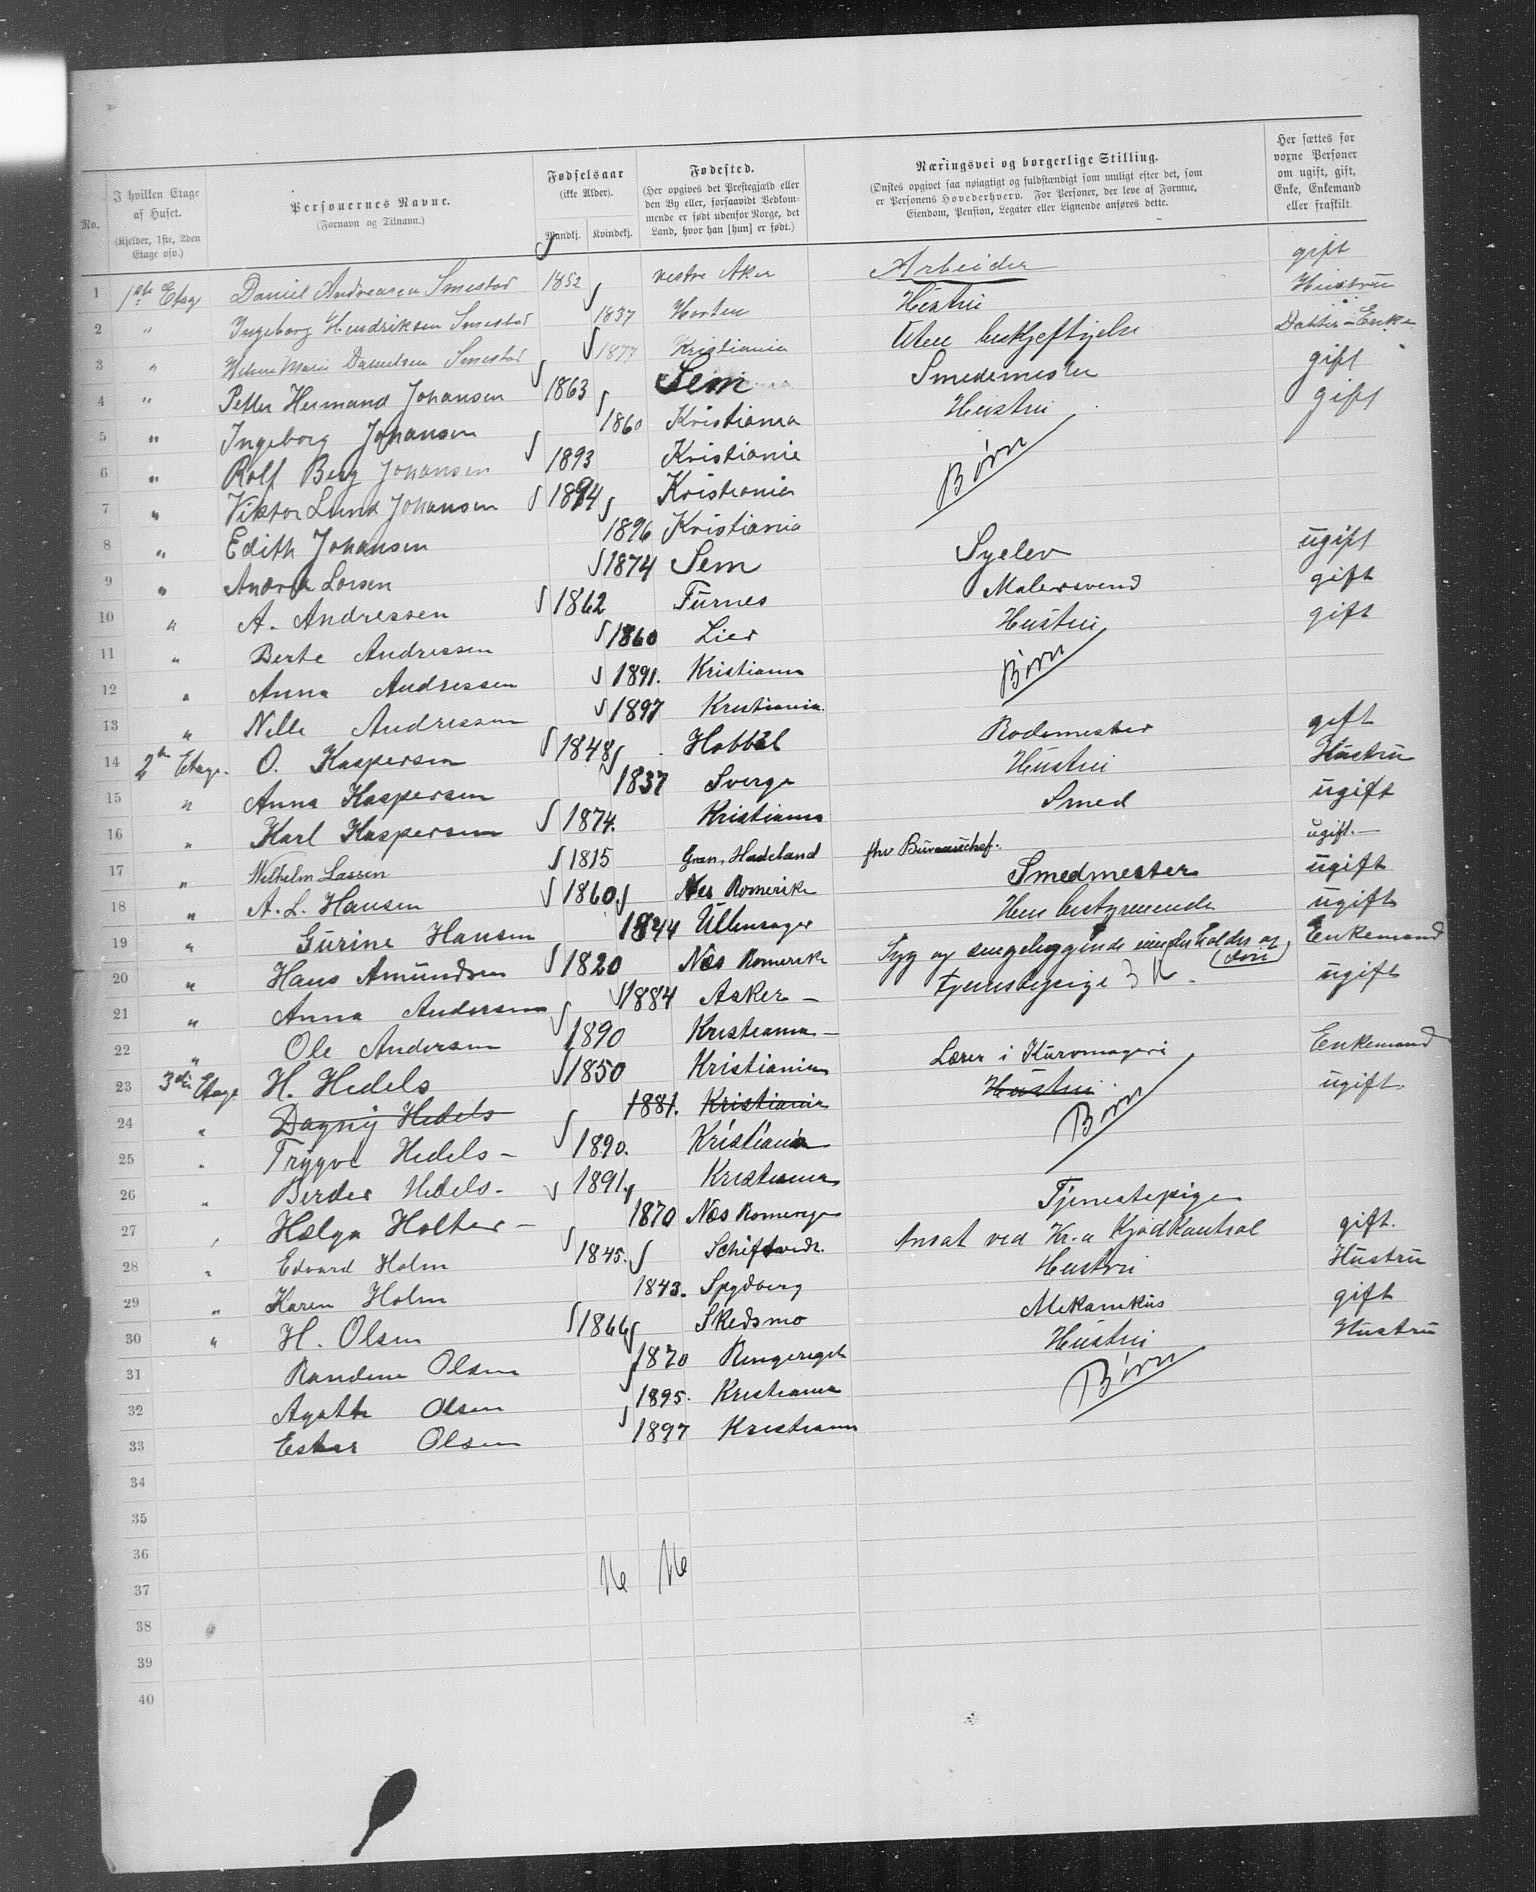 No. | I hvilken Etage af Huset. (Kjelder, 1ste, 2den Etage osv.) | Personernes Navne. (Fornavn og Tilnavn.) | Fødselsaar (ikke Alder). Mandkj. Kvindekj. | Fødested. (Her opgives det Prestegjæld eller den By eller, forsaavidt Vedkommende er født udenfor Norge, det Land, hvor han [hun] er født.) | Næringsvei og borgerlige Stilling. (Ønskes opgivet saa nøiagtigt og fuldstændigt som muligt efter det, som er Personens Hovederhverv. For Personer, der leve af Formue, Eiendom, Pension, Legater eller Lignende anføres dette. | Her sættes for voxne Personer om ugift, gift, Enke, Enkemand eller fraskilt.
1 1ste Etag Daniel Andreasen Smestad 1852 vestre Aker Arbeider gift
2 " Ingeborg Hendriksen Smestad 1837 Horten Hustru Hustru
3 " Marie Danielsen Smestad 1877 Kristiania Uten beskjeftigelse Datter - Enke
4 " Petter Hermand Johansen 1863 Sem Smedemester gift
5 " Ingeborg Johansen 1860 Kristiania Hustru gift
6 " Rolf Berg Johansen 1893 Kristiania Børn
7 " Viktor Lund Johansen 1894 Kristiania
8 " Edith Johansen 1896 Kristiania
9 " Andrea Larsen 1874 Sem Syelev ugift
10 " A. Andressen 1862 Furnes Malersvend gift
11 " Berte Andressen 1860 Lier Hustru gift
12 " Anna Andressen 1891. Kristiania Børn
13 " Nelle Andressen 1897 Kristiania.
14 2den Etage. O. Kaspersen 1848 Hobbøl Rodemester gift
15 " Anna Kaspersen 1837 Sverge Hustru Hustru
16 " Karl Kaspersen 1874. Kristiania Smed ugift
17 " Wilhelm Lassen 1815 Gran, Hadeland fhv Bureauchef. ugift. -
18 " A. L. Hansen 1860 Nes Romerike Smedmester ugift
19 " Gurine Hansen 1844 Ullensager Hus bestyrende ugift
20 " Hans Amundsen 1820 Næs Romerike Syg og sengeliggende underholdes af Søn Enkemand
21 " Anna Andersen 1884 Asker - Tjenestepige ugift
22 " Ole Andersen 1890 Kristiania -
23 3die Etage H. Hedels 1850 Kristiania Lærer i Kurvmageri Enkemand
24 " Dagny Hedels 1881. Kristiania Hustru ugift.
25 " Trygve Hedels - 1890. Kristiania Børn
26 " Birder Hedels - 1891 Kristiania
27 " Hælga Holter - 1870 Næs Romerige Tjenestepige
28 " Edvard Holm 1845. Ansat ved Kr.a Kjødkontrol gift.
29 " Karen Holm 1843. Spydberg Hustru Hustru
30 " H. Olsen 1866 Skedsmo Mekanikus gift
31 Randine Olsen 1870 Ringeriget Hustru Hustru
32 Agathe Olsen 1895. Kristiania Børn
33 Ester Olsen 1897 Kristiania
34
35
36
37
38
39
40